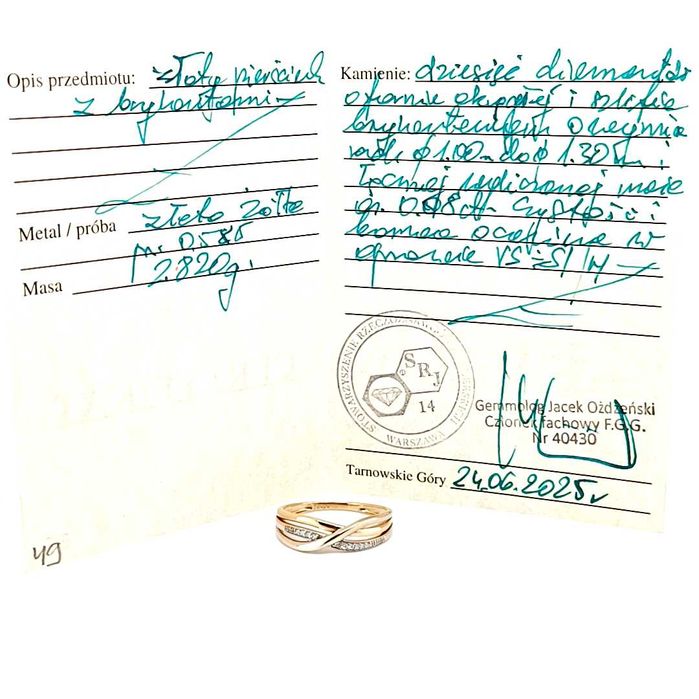 Opis przedmiotu: złoty pierścień
z brylantami
Metal / próba złoto żółte
pr. 0.585
Masa 2.820g.
49
Kamienie: dziesięć diamentów
o formie okrągłej i szlifie
brylantowym o
ø 1.00 do ø 1.30 i
łącznej masie
0.08ct. Czystość i
barwa oceniona w
oprawie VS÷SI/H
STOWARZYSZENIE RZECZOZNAWCÓW
WARSZAWA
SRJ
14
Gemmolog Jacek Ożdżeński
Członek fachowy F.G.G.
Nr 40430
Tarnowskie Góry 24.06.2025r